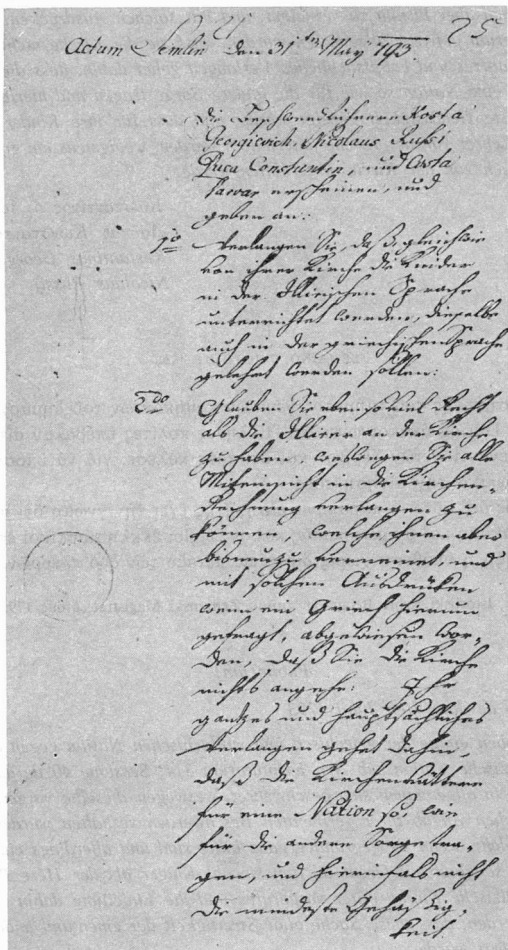 25
Actum Semlin den 31ten May 793
Die Beschwerdführere Kosta
Georgievich, Nicolaus Russi
Puca Constantin, und Costa
erscheinen, und
geben an:
1o Verlangen Sie, daß gleichwie
von ihrer Kirche die Kinder
in der Illirischen Sprache
unterrichtet werden, dieselbe
auch in der griechischen Sprache
gelehrt werden sollen:
2do Glauben Sie eben so viel Recht
als die Illirer an der Kirche
zu haben, weswegen Sie alle
Miteinsicht in die Kirchen-
Rechnung verlangen zu
können, welche ihnen aber
bisnunzu verneinet, und
mit solchen Ausdrüken
wenn ein Griech hierum
gefragt, abgewiesen wor-
den, daß Sie die Kirche
nichts angehe: Ihr
gantzes und hauptsächliches
Verlangen gehet dahin
daß die Kirchenvättere
für eine Nation so, wie
für die andere Sorge tra-
gen, und hierinfals nicht
die mindeste Gehäßig-
keit